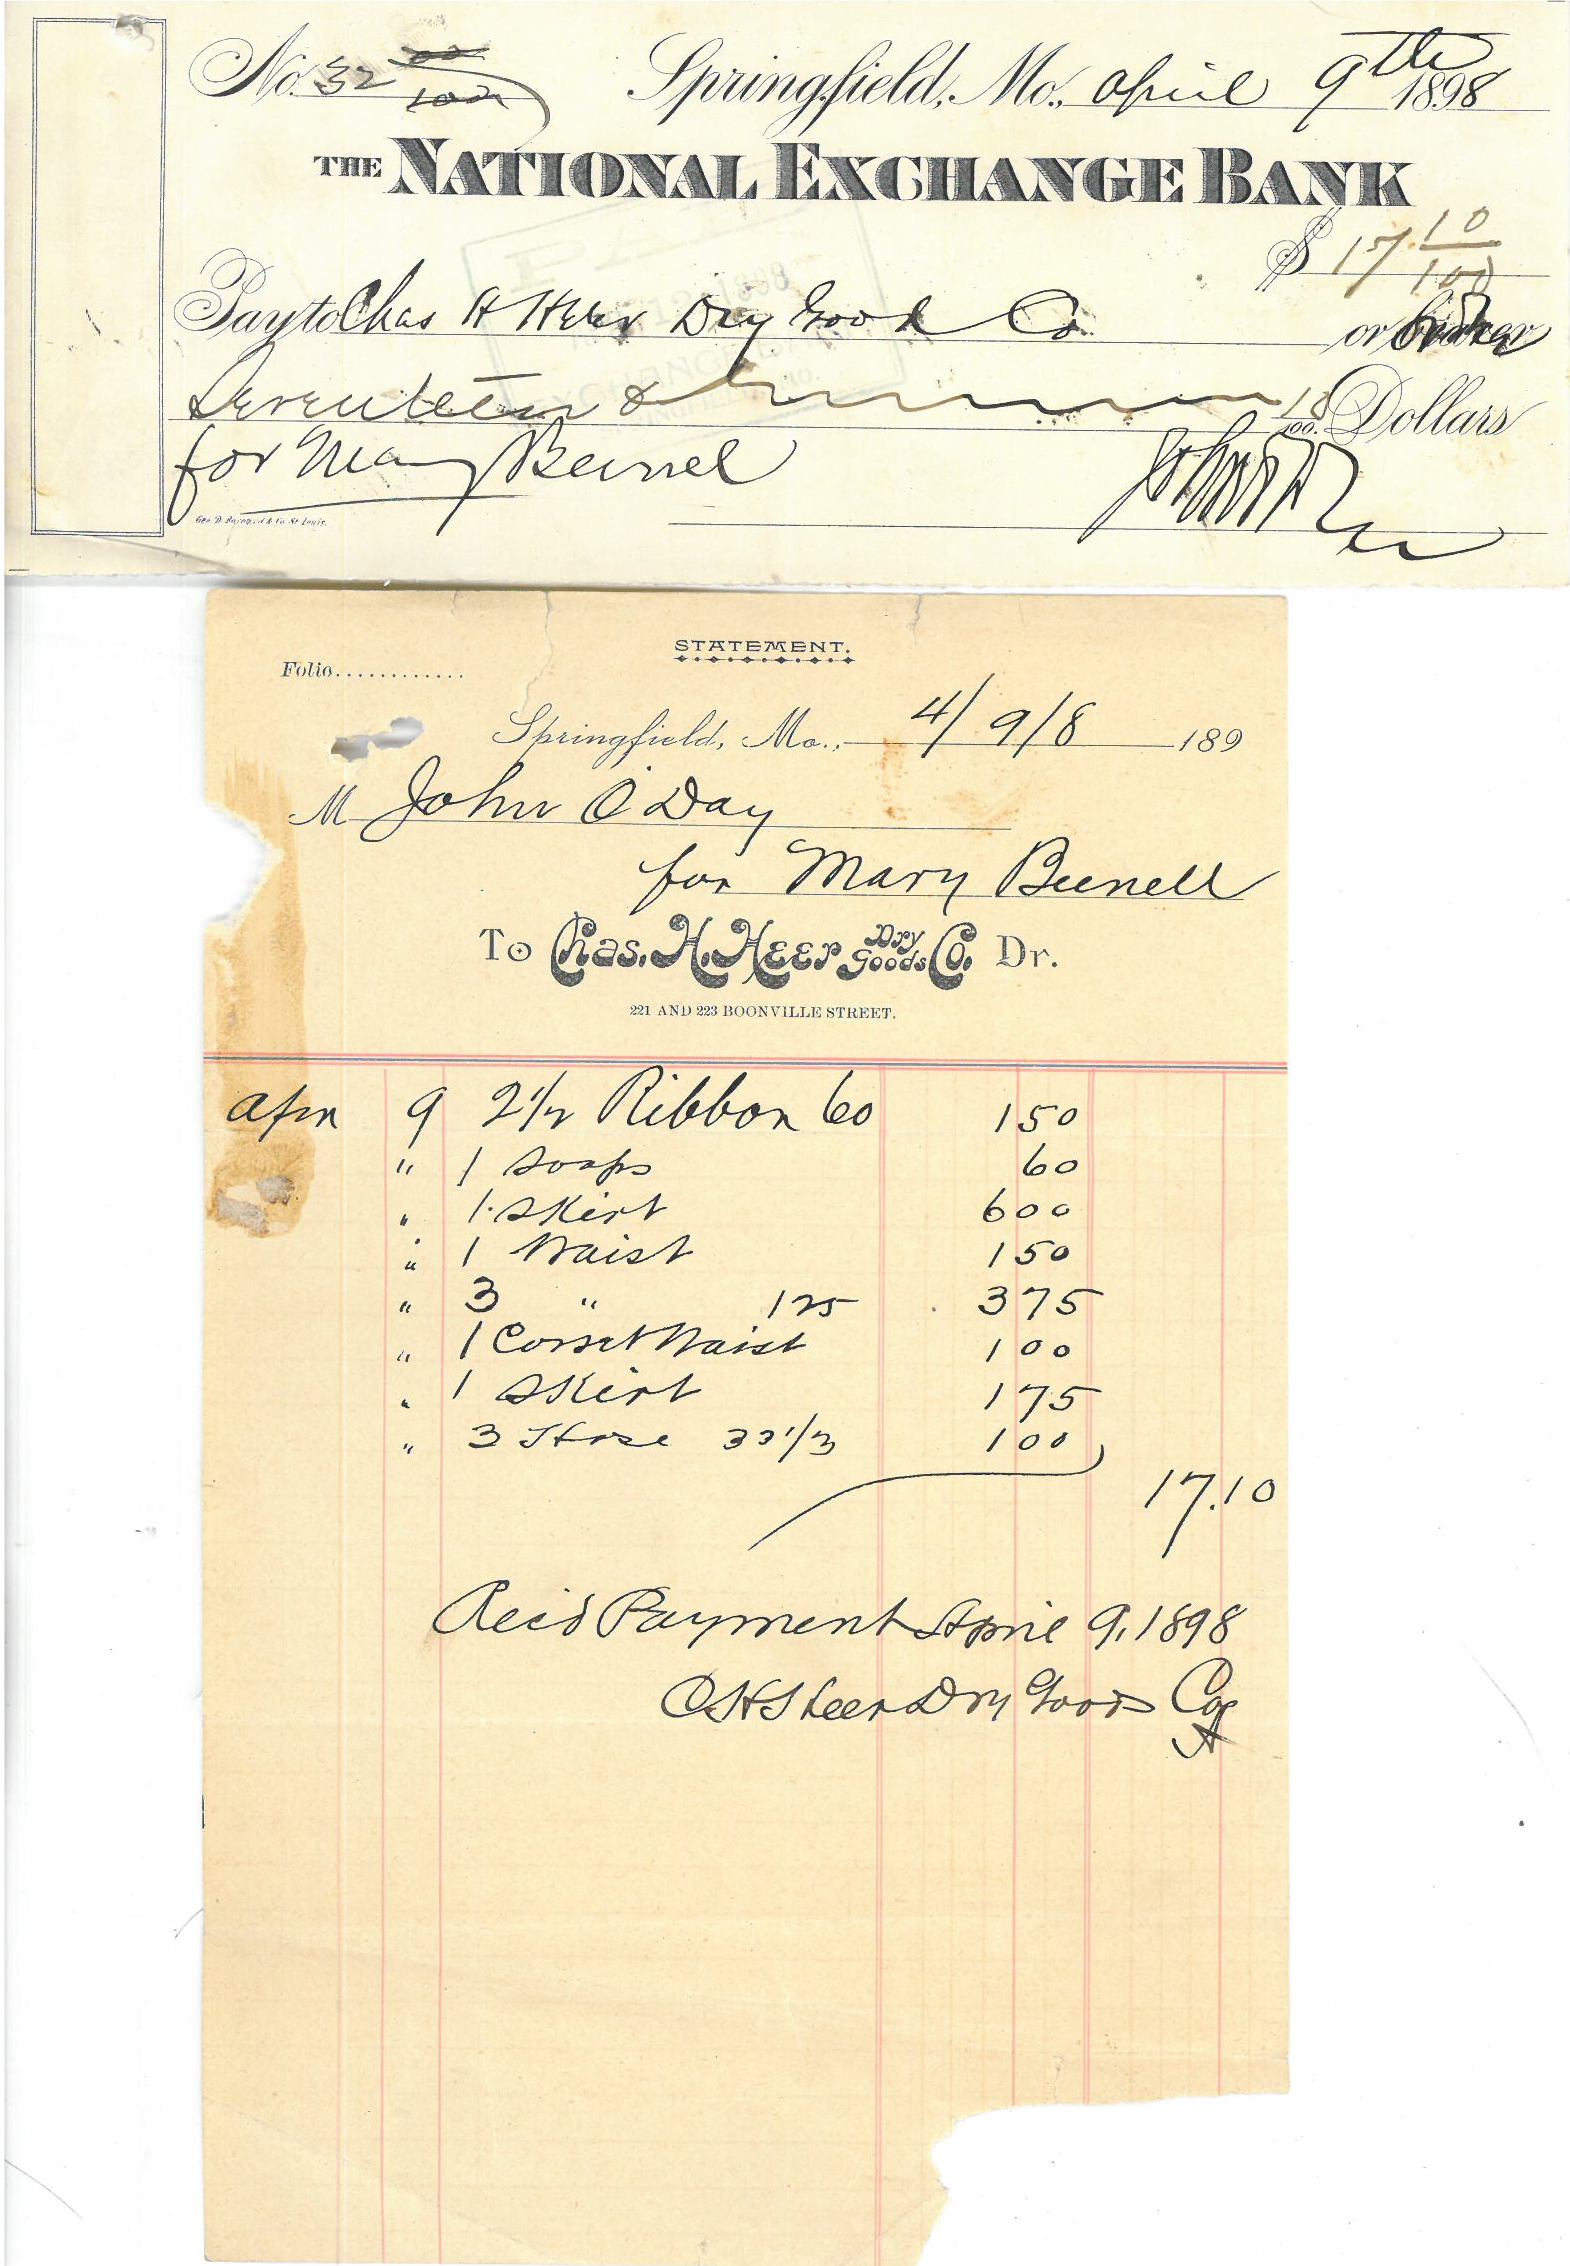 No. 32 00/100
Springfield, Mo., April 9th 1898
THE NATIONAL EXCHANGE BANK
$ 17 10/100
Pay to Chas H Heer Dry Good Co or
Seventeen & 10/100 Dollars
for Mary Bunel
Geo. D. Barnard & Co. St. Louis.
STATEMENT.
Folio............
Springfield, Mo., 4/9/8 189
M John O'Day
for Mary Bunell
To Chas. H. Heer Dry Goods Co. Dr.
221 AND 223 BOONVILLE STREET.
Apr 9 2 1/2 Ribbon 60 150
" 1 Soaps 60
" 1 Skirt 600
" 1 Waist 150
" 3 " 125 375
" 1 Corset Waist 100
" 1 Skirt 175
" 3 Hose 33 1/3 100
17.10
Recd Payment April 9, 1898
C H Heer Dry Goods Co